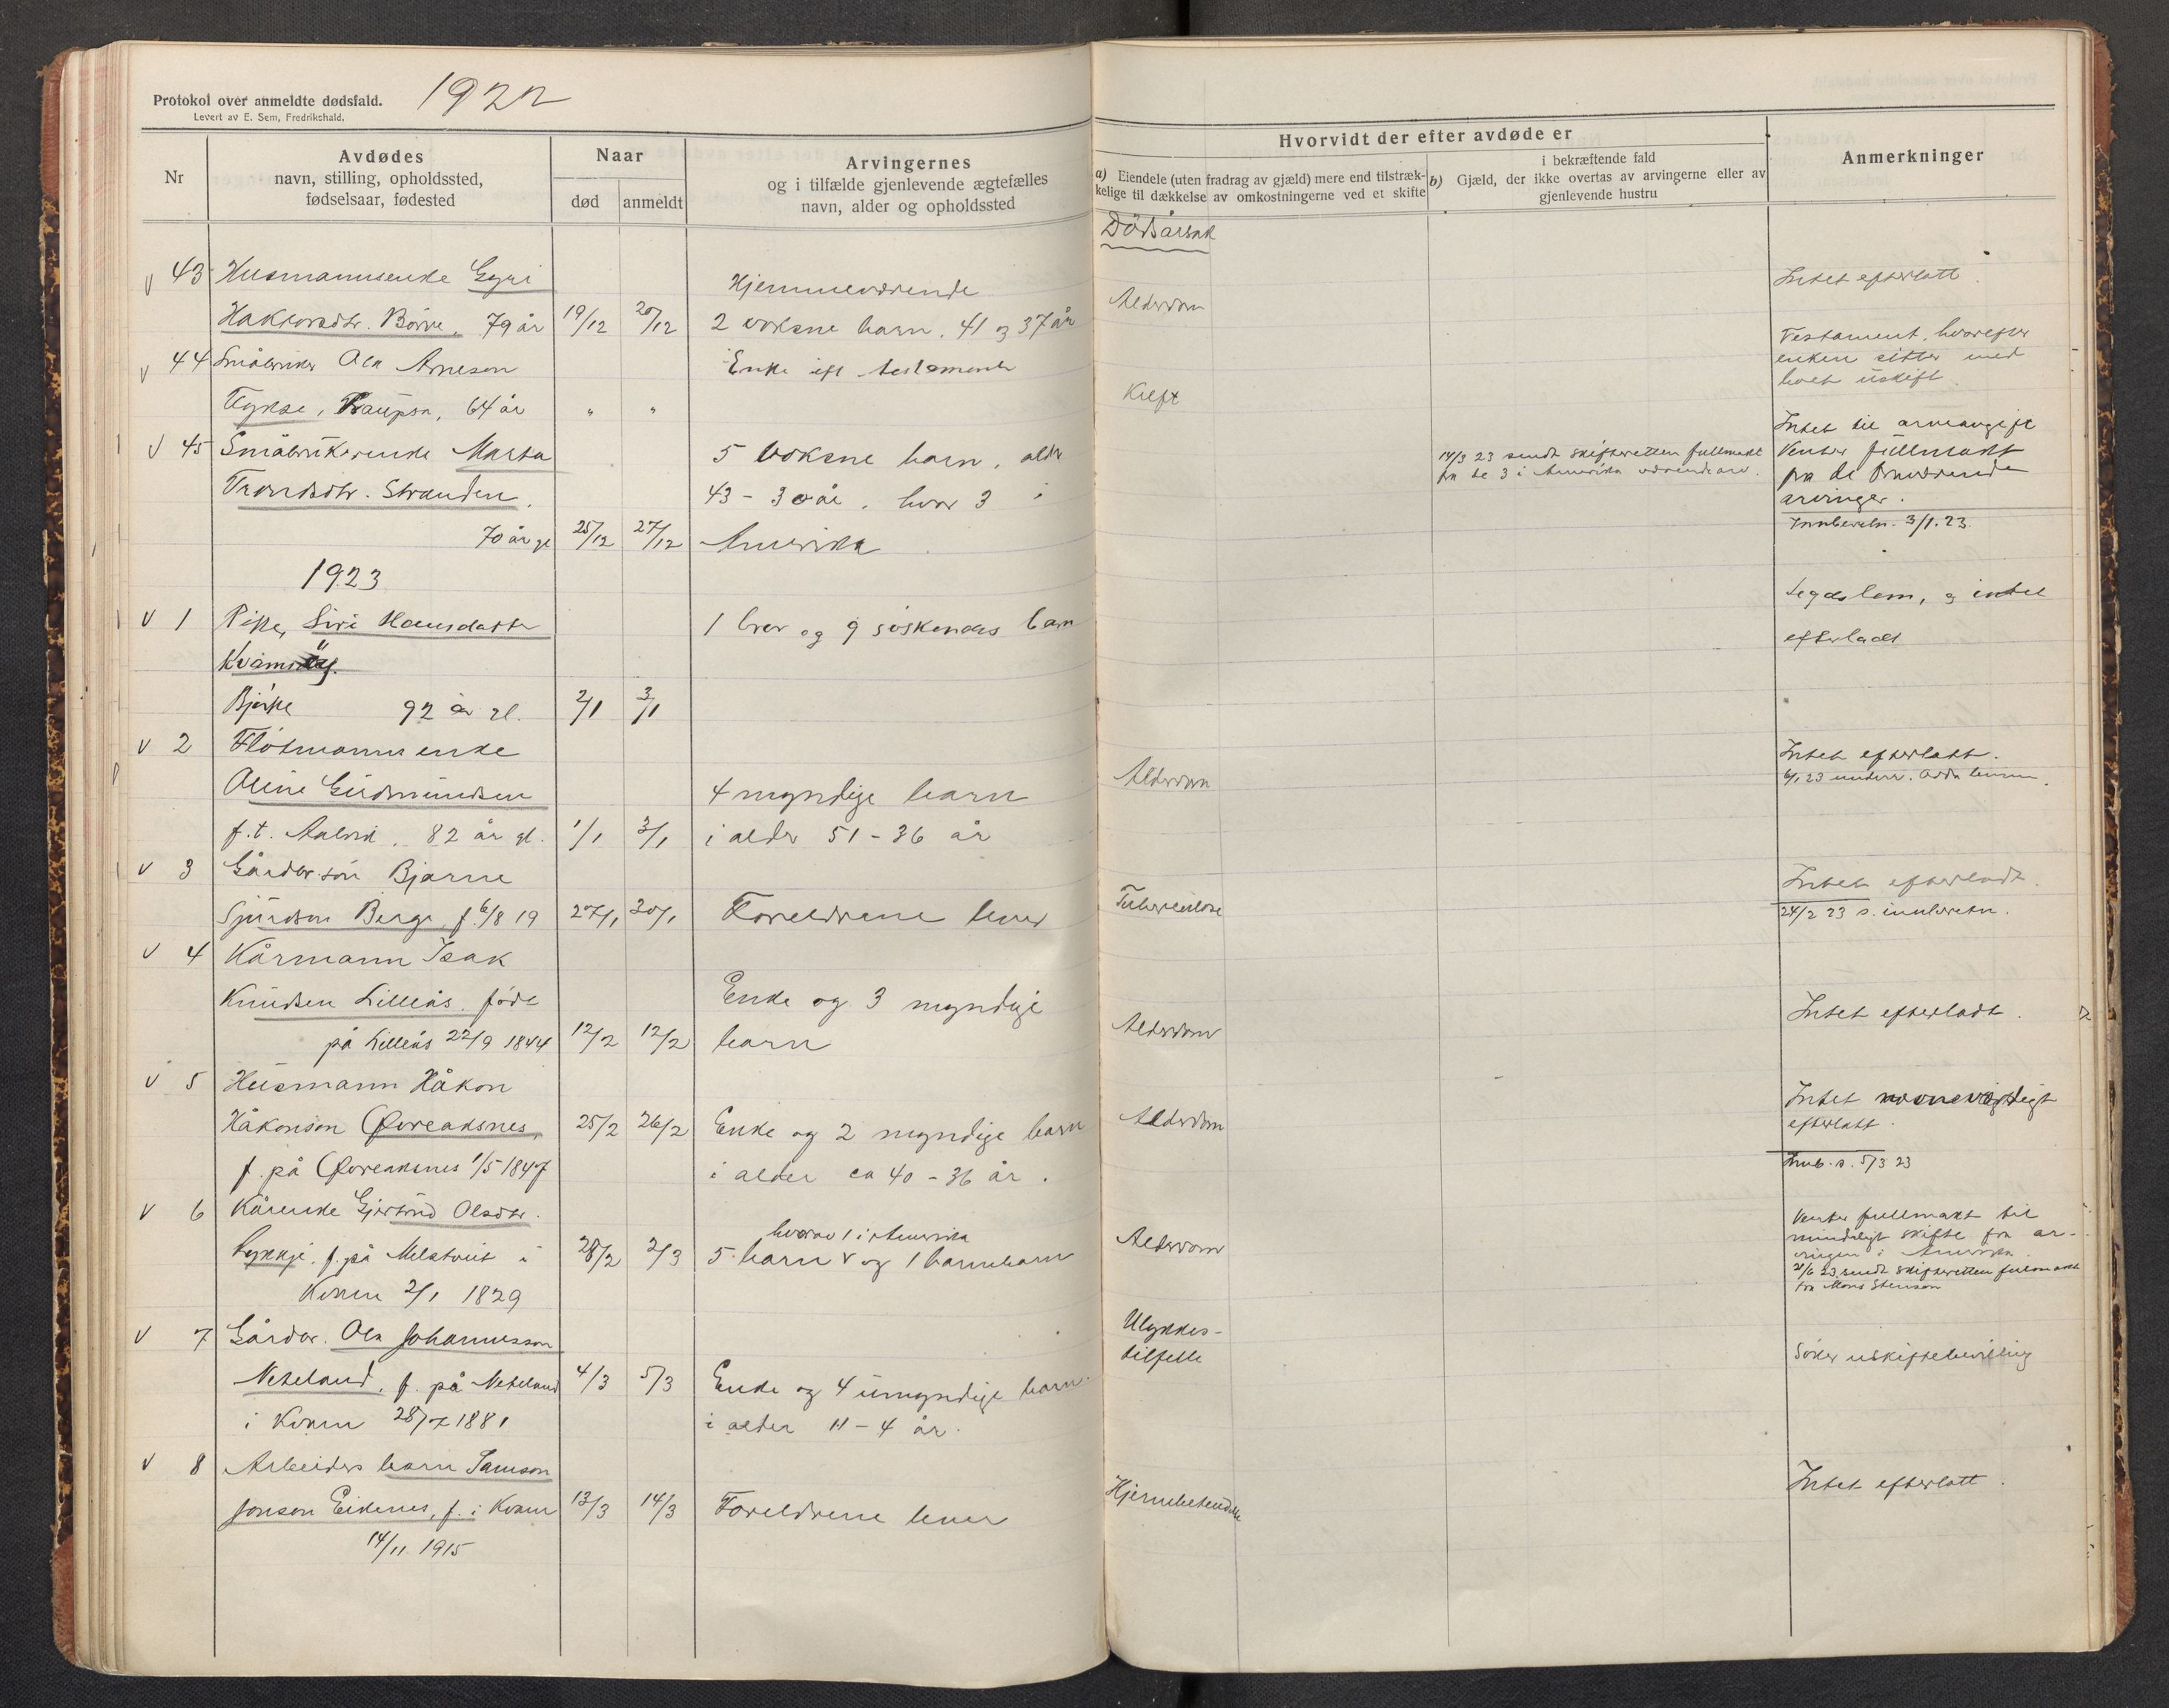 Protokol over anmeldte dødsfald. 1922
Levert av E. Sem, Fredrikshald.
Nr
Avdødes
navn, stilling, opholdssted,
fødselsaar, fødested
Naar
død
anmeldt
Arvingernes
og i tilfælde gjenlevende ægtefælles
navn, alder og opholdssted
Hvorvidt der efter avdøde er
a) Eiendele (uten fradrag av gjæld) mere end tilstræk-
kelige til dækkelse av omkostningerne ved et skifte
i bekræftende fald
b) Gjæld, der ikke overtas av arvingerne eller av
gjenlevende hustru
Anmerkninger
Dödsårsak
v 43 Husmannsenke Gyri
Hjemmeværende
Intet efterlatt.
Haktorsdtr. Börve, 79 år 19/12 20/12 2 voksne barn, 41 og 37 år
Alderdom
v 44 Småbruker Ola Arneson
Enke eft testamente
Testament, hvorefter
enken sitter med
boet uskift
Tykse, 64 år " "
Kreft
v 45 Småbrukerenke Marta
5 voksne barn, alder
14/3 23 sendt skifteretten fullmakt
fra de 3 i Amerika værende arv.
Intet til arveavgift
Venter fullmakt
fra de fraværende
arvinger.
Trondsdtr. Stranden,
43 - 30 år, hvor 3 i
Innberetn. 3/1. 23.
70 år gl 25/12 27/12 Amerika
1923
v 1 Pike, Siri Hansdatter
1 bror og 9 söskendes barn
Legdslem, og intet
efterladt
Bjerke 92 år gl. 2/1 3/1
v 2 Flötmannenke
Intet efterlatt.
Oline Gudmundsen
4 myndige barn
Alderdom
f.t. Aalvik, 82 år gl. 1/1 3/1 i alder 51 - 36 år
v 3 Gårdbr. sön Bjarne
Intet efterladt.
Sjurdson Berge, f. 6/8 19 27/1 30/1 Foreldrene lever
Tuberkulose
24/2 23 s. innberetn.
v 4 Kårmann Isak
Knudsen Lilleås, föde
Enke og 3 myndige
Intet efterladt.
på Lilleås 22/9 1844 12/2 12/2 barn
Alderdom
v 5 Husmann Håkon
Intet
efterlatt.
Håkonson Övreaksnes, 25/2 26/2 Enke og 2 myndige barn
Alderdom
f. på Övreaksnes 1/5 1847
i alder ca 40 - 36 år.
Innb. s. 5/3 23
v 6 Kårenke Gjertrud Olsdtr.
hvorav 1 i Amerika
Venter fullmakt til
mindeligt skifte fra ar-
vingen i Amerika
Lykkje, f. på Melstveit i 28/2 2/3 5 barn v og 1 barnebarn
Alderdom
21/6 23 sendt skifteretten fullmakt
fra Mons Stenson
Kvam 2/1 1829
v 7 Gårdbr. Ola Johannesson
Ulykkes-
tilfelle
Söker uskiftebevilling
Neteland, f. på Neteland 4/3 5/3 Enke og 4 umyndige barn
i Kvam 28/7 1881
i alder 11 - 4 år.
v 8 Arbeiders barn Samson
Intet efterlatt.
Jonson Eidenes, f. i Kvam 13/3 14/3 Foreldrene lever
Hjernebetendelse
14/11 1915